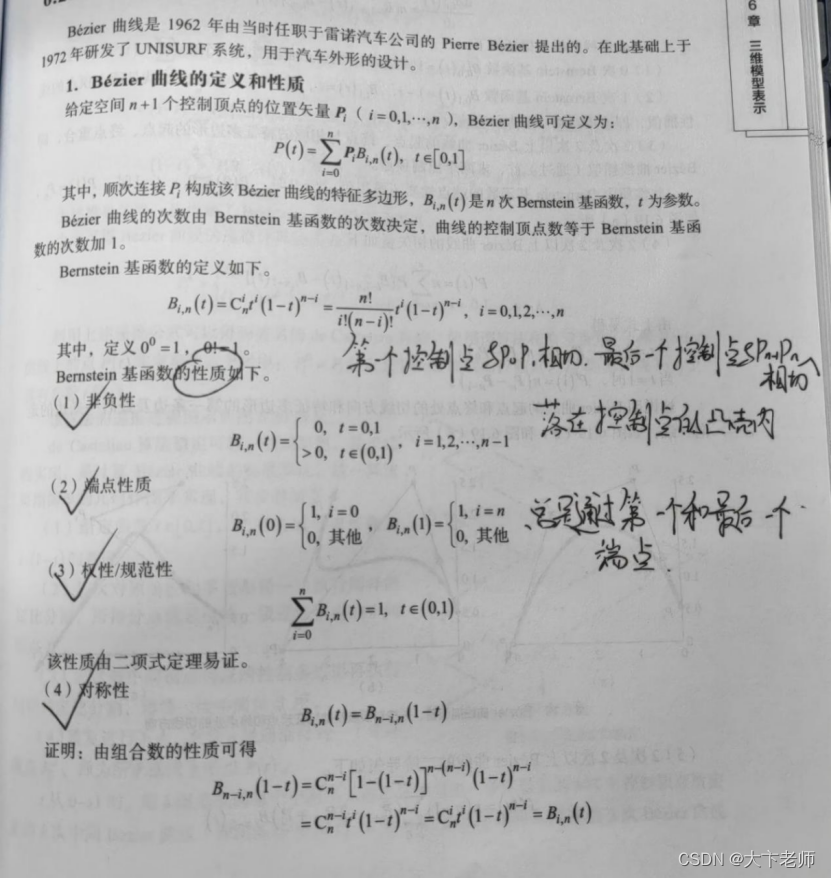 Bézier 曲线是 1962 年由当时任职于雷诺汽车公司的 Pierre Bézier 提出的。在此基础上于
1972 年研发了 UNISURF 系统，用于汽车外形的设计。
1. Bézier 曲线的定义和性质
给定空间 n+1 个控制顶点的位置矢量 Pᵢ（ i=0,1,⋯,n ），Bézier 曲线可定义为：
P(t)=∑ᵢ₌₀ⁿ PᵢBᵢ,ₙ(t), t∈[0,1]
其中，顺次连接 Pᵢ 构成该 Bézier 曲线的特征多边形，Bᵢ,ₙ(t) 是 n 次 Bernstein 基函数，t 为参数。
Bézier 曲线的次数由 Bernstein 基函数的次数决定，曲线的控制顶点数等于 Bernstein 基函
数的次数加 1。
Bernstein 基函数的定义如下。
Bᵢ,ₙ(t)=Cₙⁱtⁱ(1−t)ⁿ⁻ⁱ=n!/(i!(n−i)!) tⁱ(1−t)ⁿ⁻ⁱ, i=0,1,2,⋯,n
其中，定义 0⁰=1，0!=1。
第一个控制点与P₀P₁相切. 最后一个控制点与Pₙ₋₁Pₙ
相切
Bernstein 基函数的性质如下。
(1) 非负性
Bᵢ,ₙ(t)={0, t=0,1
>0, t∈(0,1)}, i=1,2,⋯,n−1
落在控制点的凸壳内
(2) 端点性质
Bᵢ,ₙ(0)={1, i=0
0, 其他}, Bᵢ,ₙ(1)={1, i=n
0, 其他}
总是通过第一个和最后一个
端点.
(3) 权性/规范性
∑ᵢ₌₀ⁿ Bᵢ,ₙ(t)=1, t∈(0,1)
该性质由二项式定理易证。
(4) 对称性
Bᵢ,ₙ(t)=Bₙ₋ᵢ,ₙ(1−t)
证明：由组合数的性质可得
Bₙ₋ᵢ,ₙ(1−t)=Cₙⁿ⁻ⁱ[1−(1−t)]ⁿ⁻⁽ⁿ⁻ⁱ⁾(1−t)ⁿ⁻ⁱ
=Cₙⁿ⁻ⁱtⁱ(1−t)ⁿ⁻ⁱ=Cₙⁱtⁱ(1−t)ⁿ⁻ⁱ=Bᵢ,ₙ(t)
6
章
三维模型表示
CSDN @大卞老师